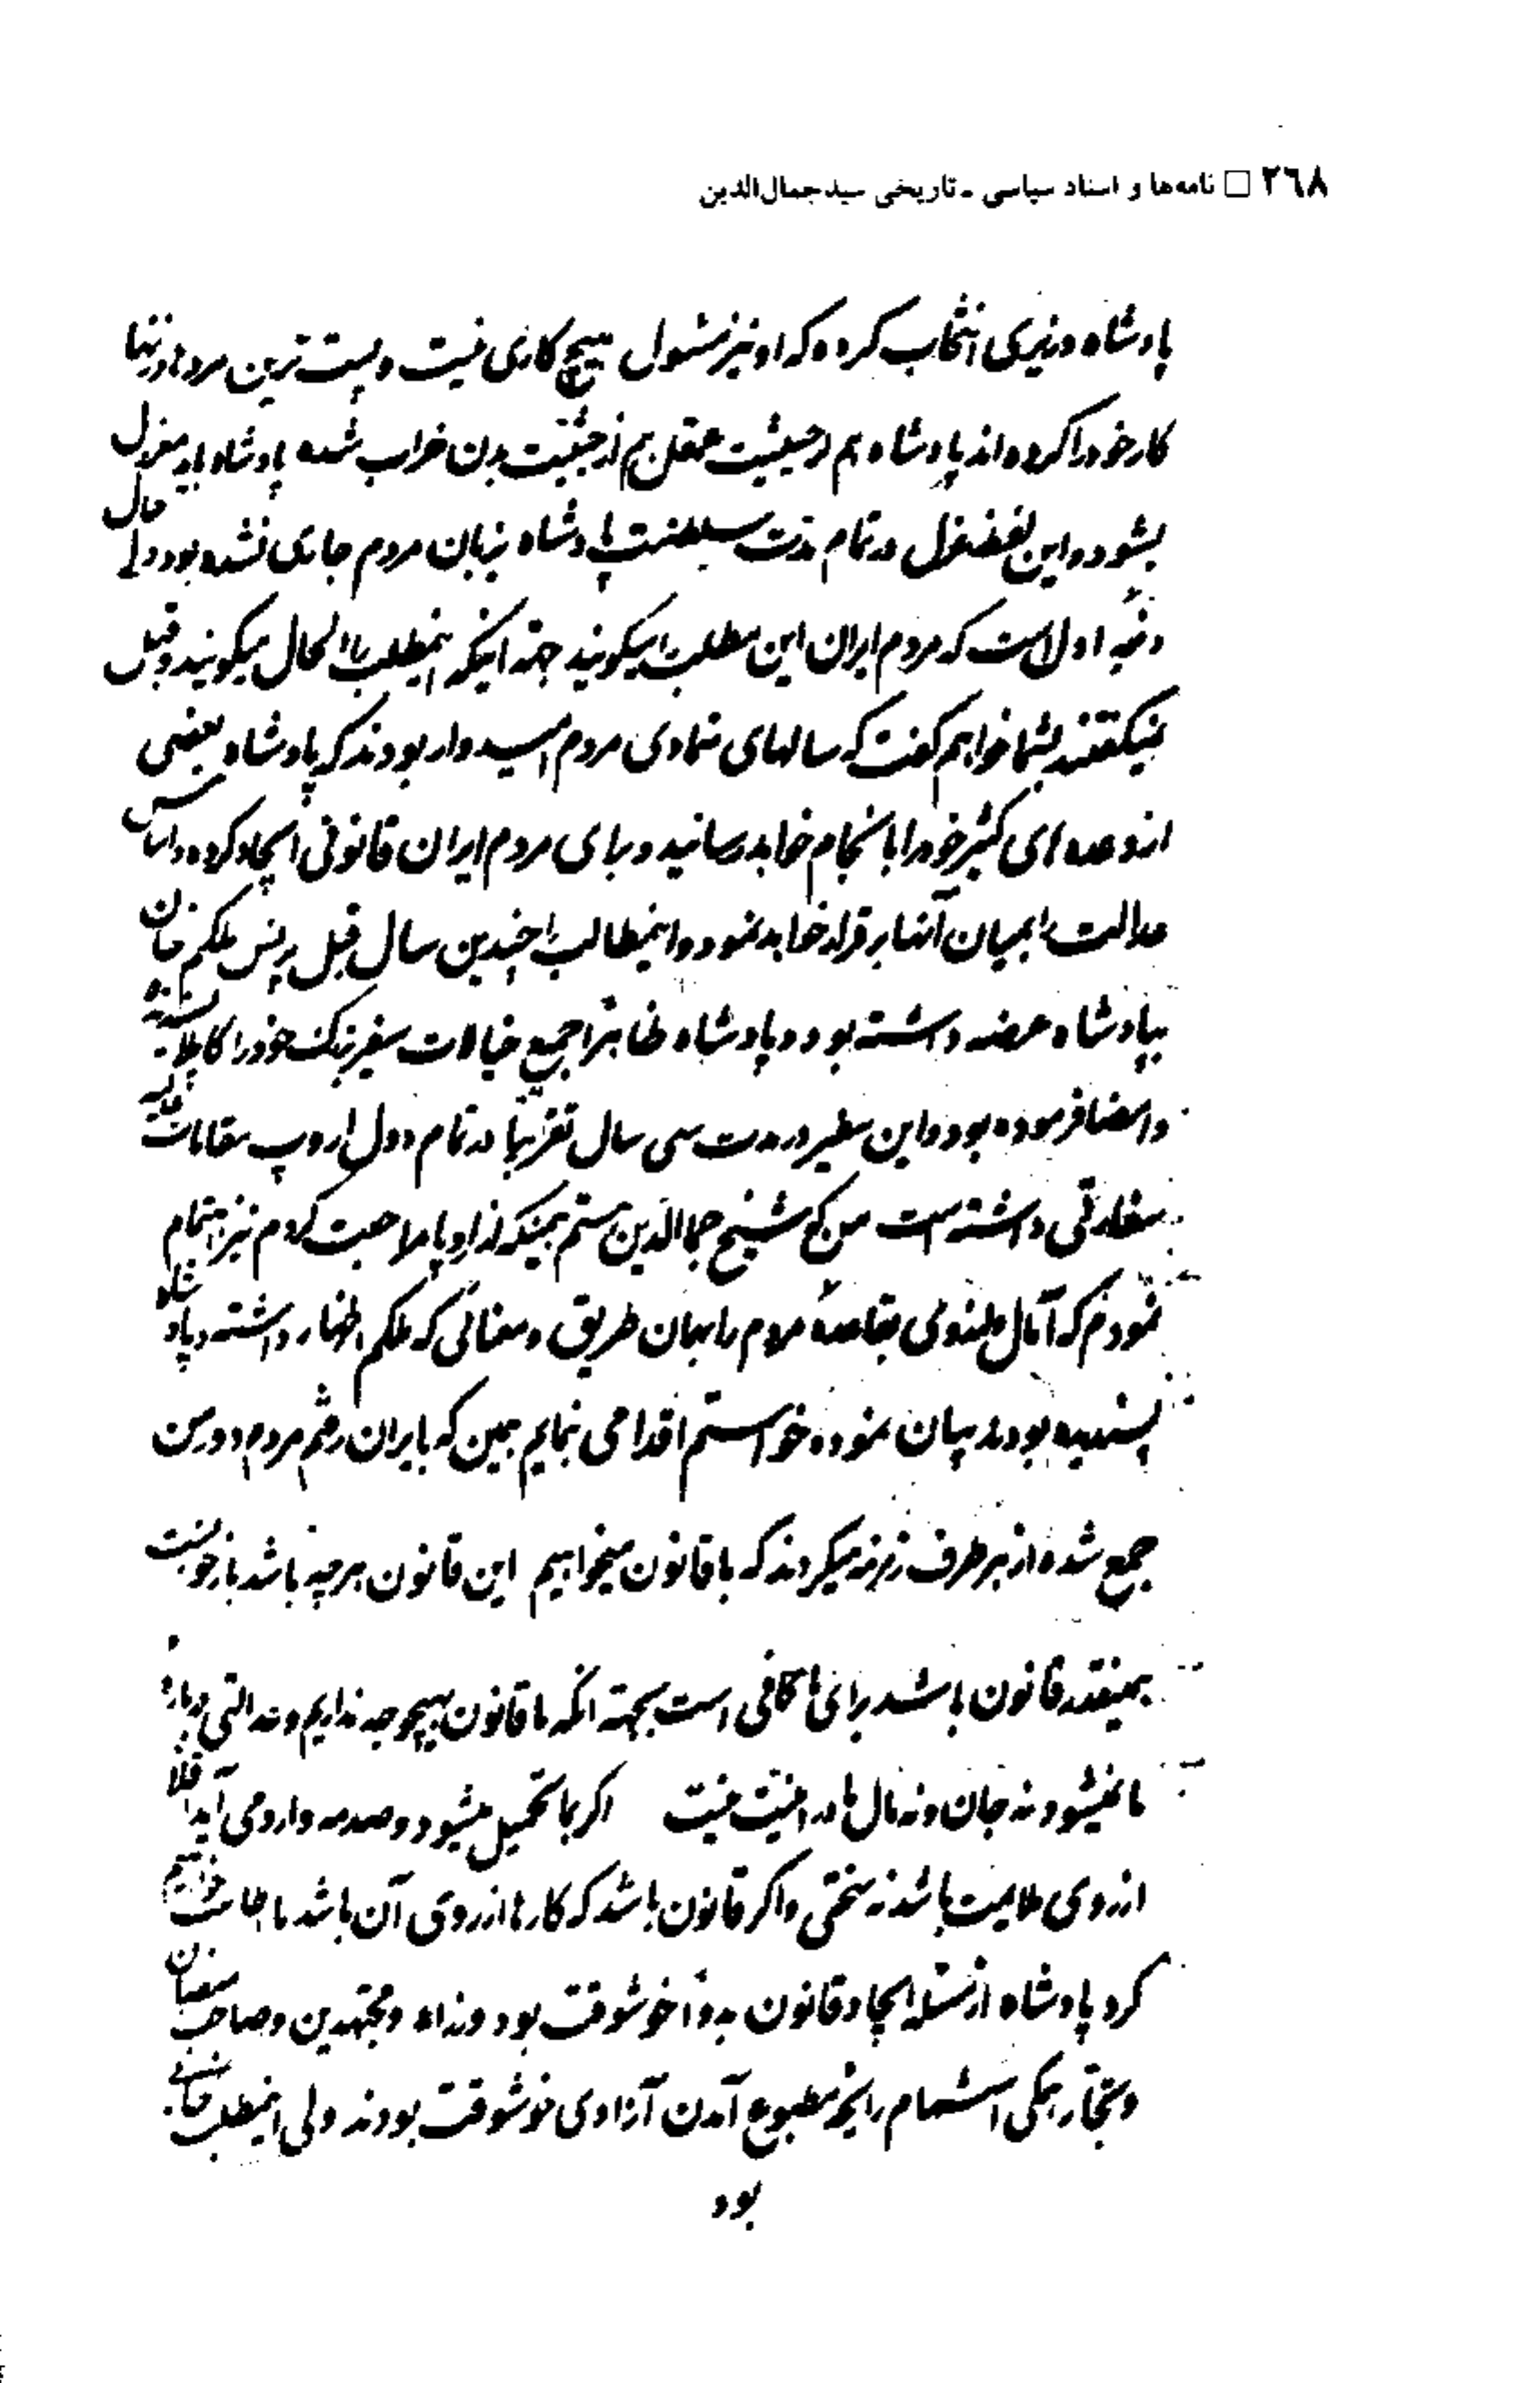 ۲٦۸ □ نامه‌ها و اسناد سیاسی ـ تاریخی سیدجمال‌الدین
پادشاه وزیری انتخاب کرده که او نیز مسئول هیچ کاری نیست و پست ترین مردم
کار خود را کرده‌اند پادشاه هم از حیثیت عقل هم از حیثیت بدن خراب شده پادشاه باید معزول
بشود و این لفظ عزل در تمام مدت سلطنت پادشاه بزبان مردم جاری نشده بود و حال
دفعهٔ اول است که مردم ایران این مطلب را میگویند جهة اینکه اینمطلب را الحال میگویند و قبل
نمیگفتند بشما خواهم گفت که سالهای تمادی مردم امیدوار بودند که پادشاه بعضی
از وعده‌های کثیر خود را بانجام خواهد رسانید و برای مردم ایران قانونی ایجاد کرده و اساس
عدالت را بمیان آنها برقرار خواهد نمود و اینمطالب را چندین سال قبل پرنس ملکم خان
بپادشاه عرضه داشته بود و پادشاه ظاهراً جمیع خیالات سفیر بزرگ خود را کاملاً
و امضا فرموده بود و این سفیر در مدت سی سال تقریباً در تمام دول اروپ مقامات
سفارتی داشته است من که شیخ جمال‌الدین هستم همینکه از اروپا مراجعت کردم نیز اهتمام
نمودم که آمال ملت و مقاصد مردم را بهمان طریق و معنائی که ملکم اظهار داشته و پادشاه
پسندیده بودند بیان نموده خواستم اقدامی نمایم همین که بایران رفتم مردم دور من
جمع شده از هر طرف زمزمه میکردند که ما قانون میخواهیم این قانون هر چه باشد باز خوبست
همینقدر قانون باشد برای ما کافی است بجهة آنکه ما قانون بهیچوجه نداریم و عدالتی دربارهٔ
ما نمیشود نه جان و نه مال ما در امنیت نیست اگر بما تحمیل میشود و صدمه وارد می آید اقلاً
از روی ملایمت باشد نه سختی و اگر قانون باشد که کارها از روی آن باشد ما اطاعت خواهیم
کرد پادشاه از مسئلهٔ ایجاد قانون بدواً خوشوقت بود وزراء و مجتهدین و صاحب منصبان
و تجار همگی استشمام رایحهٔ مطبوع آمدن آزادی خوشوقت بودند ولی اینمطلب
بود